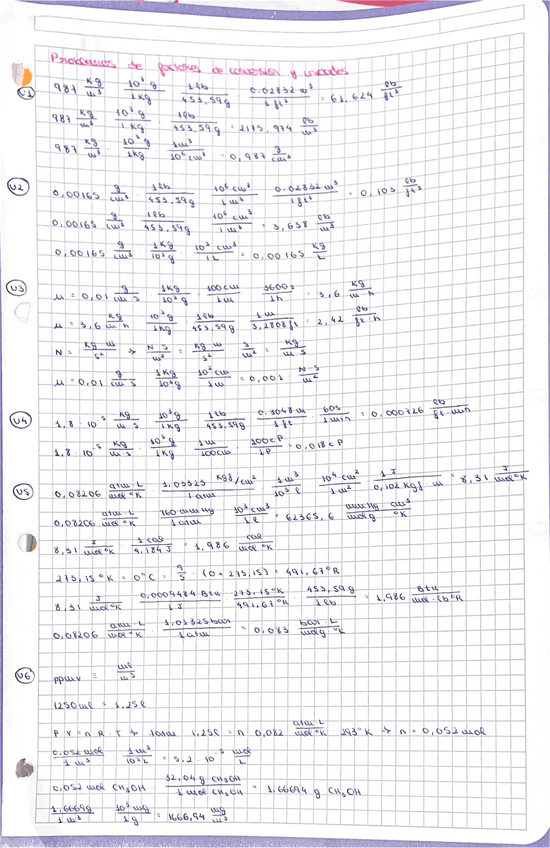 Problemas de factores de conversión y unidades
U1
987 kg/m³ · 10³ g/1 kg · 1 lb/453,59 g · 0,02832 m³/1 ft³ = 61,624 lb/ft³
987 kg/m³ · 10³ g/1 kg · 1 lb/453,59 g = 2175,974 lb/m³
987 kg/m³ · 10³ g/1 kg · 1 m³/10⁶ cm³ = 0,987 g/cm³
U2
0,00165 g/cm³ · 1 lb/453,59 g · 10⁶ cm³/1 m³ · 0,02832 m³/1 ft³ = 0,103 lb/ft³
0,00165 g/cm³ · 1 lb/453,59 g · 10⁶ cm³/1 m³ = 3,638 lb/m³
0,00165 g/cm³ · 1 kg/10³ g · 10³ cm³/1 L = 0,00165 kg/L
U3
μ = 0,01 g/cm·s · 1 kg/10³ g · 100 cm/1 m · 3600 s/1 h = 3,6 kg/m·h
μ = 3,6 kg/m·h · 10³ g/1 kg · 1 lb/453,59 g · 1 m/3,2808 ft = 2,42 lb/ft·h
N = kg·m/s² → N·S/m² = kg·m/s² · s/m² = kg/m·s
μ = 0,01 g/cm·s · 1 kg/10³ g · 10² cm/1 m = 0,001 N·S/m²
U4
1,8 · 10⁻⁵ kg/m·s · 10³ g/1 kg · 1 lb/453,59 g · 0,3048 m/1 ft · 60 s/1 min = 0,000726 lb/ft·min
1,8 · 10⁻⁵ kg/m·s · 10³ g/1 kg · 1 m/100 cm · 100 cP/1 P = 0,018 cP
U5
0,08206 atm·L/mol °K · 1,03323 kgf/cm²/1 atm · 1 m³/10³ l · 10⁴ cm²/1 m² · 1 J/0,102 kgf m = 8,31 J/mol °K
0,08206 atm·L/mol °K · 760 mmHg/1 atm · 10³ cm³/1 l = 62365,6 mmHg cm³/mol g °K
8,31 J/mol °K · 1 cal/4,184 J = 1,986 cal/mol °K
273,15 °K = 0 °C = 9/5 · (0 + 273,15) = 491,67 °R
8,31 J/mol °K · 0,0009484 Btu/1 J · 273,15 °K/491,67 °R · 453,59 g/1 lb = 1,986 Btu/mol·lb °R
0,08206 atm·L/mol °K · 1,01325 bar/1 atm = 0,083 bar·L/mol g °K
U6
ppmv = ml/m³
1250 ml = 1,25 l
P·V = n·R·T → 1 atm · 1,25 l = n · 0,082 atm·L/mol °K · 293 °K → n = 0,052 mol
0,052 mol/1 m³ · 1 m³/10³ L = 5,2 · 10⁻⁵ mol/L
0,052 mol CH₃OH · 32,04 g CH₃OH/1 mol CH₃OH = 1,66694 g CH₃OH
1,6669 g/1 m³ · 10³ mg/1 g = 1666,94 mg/m³